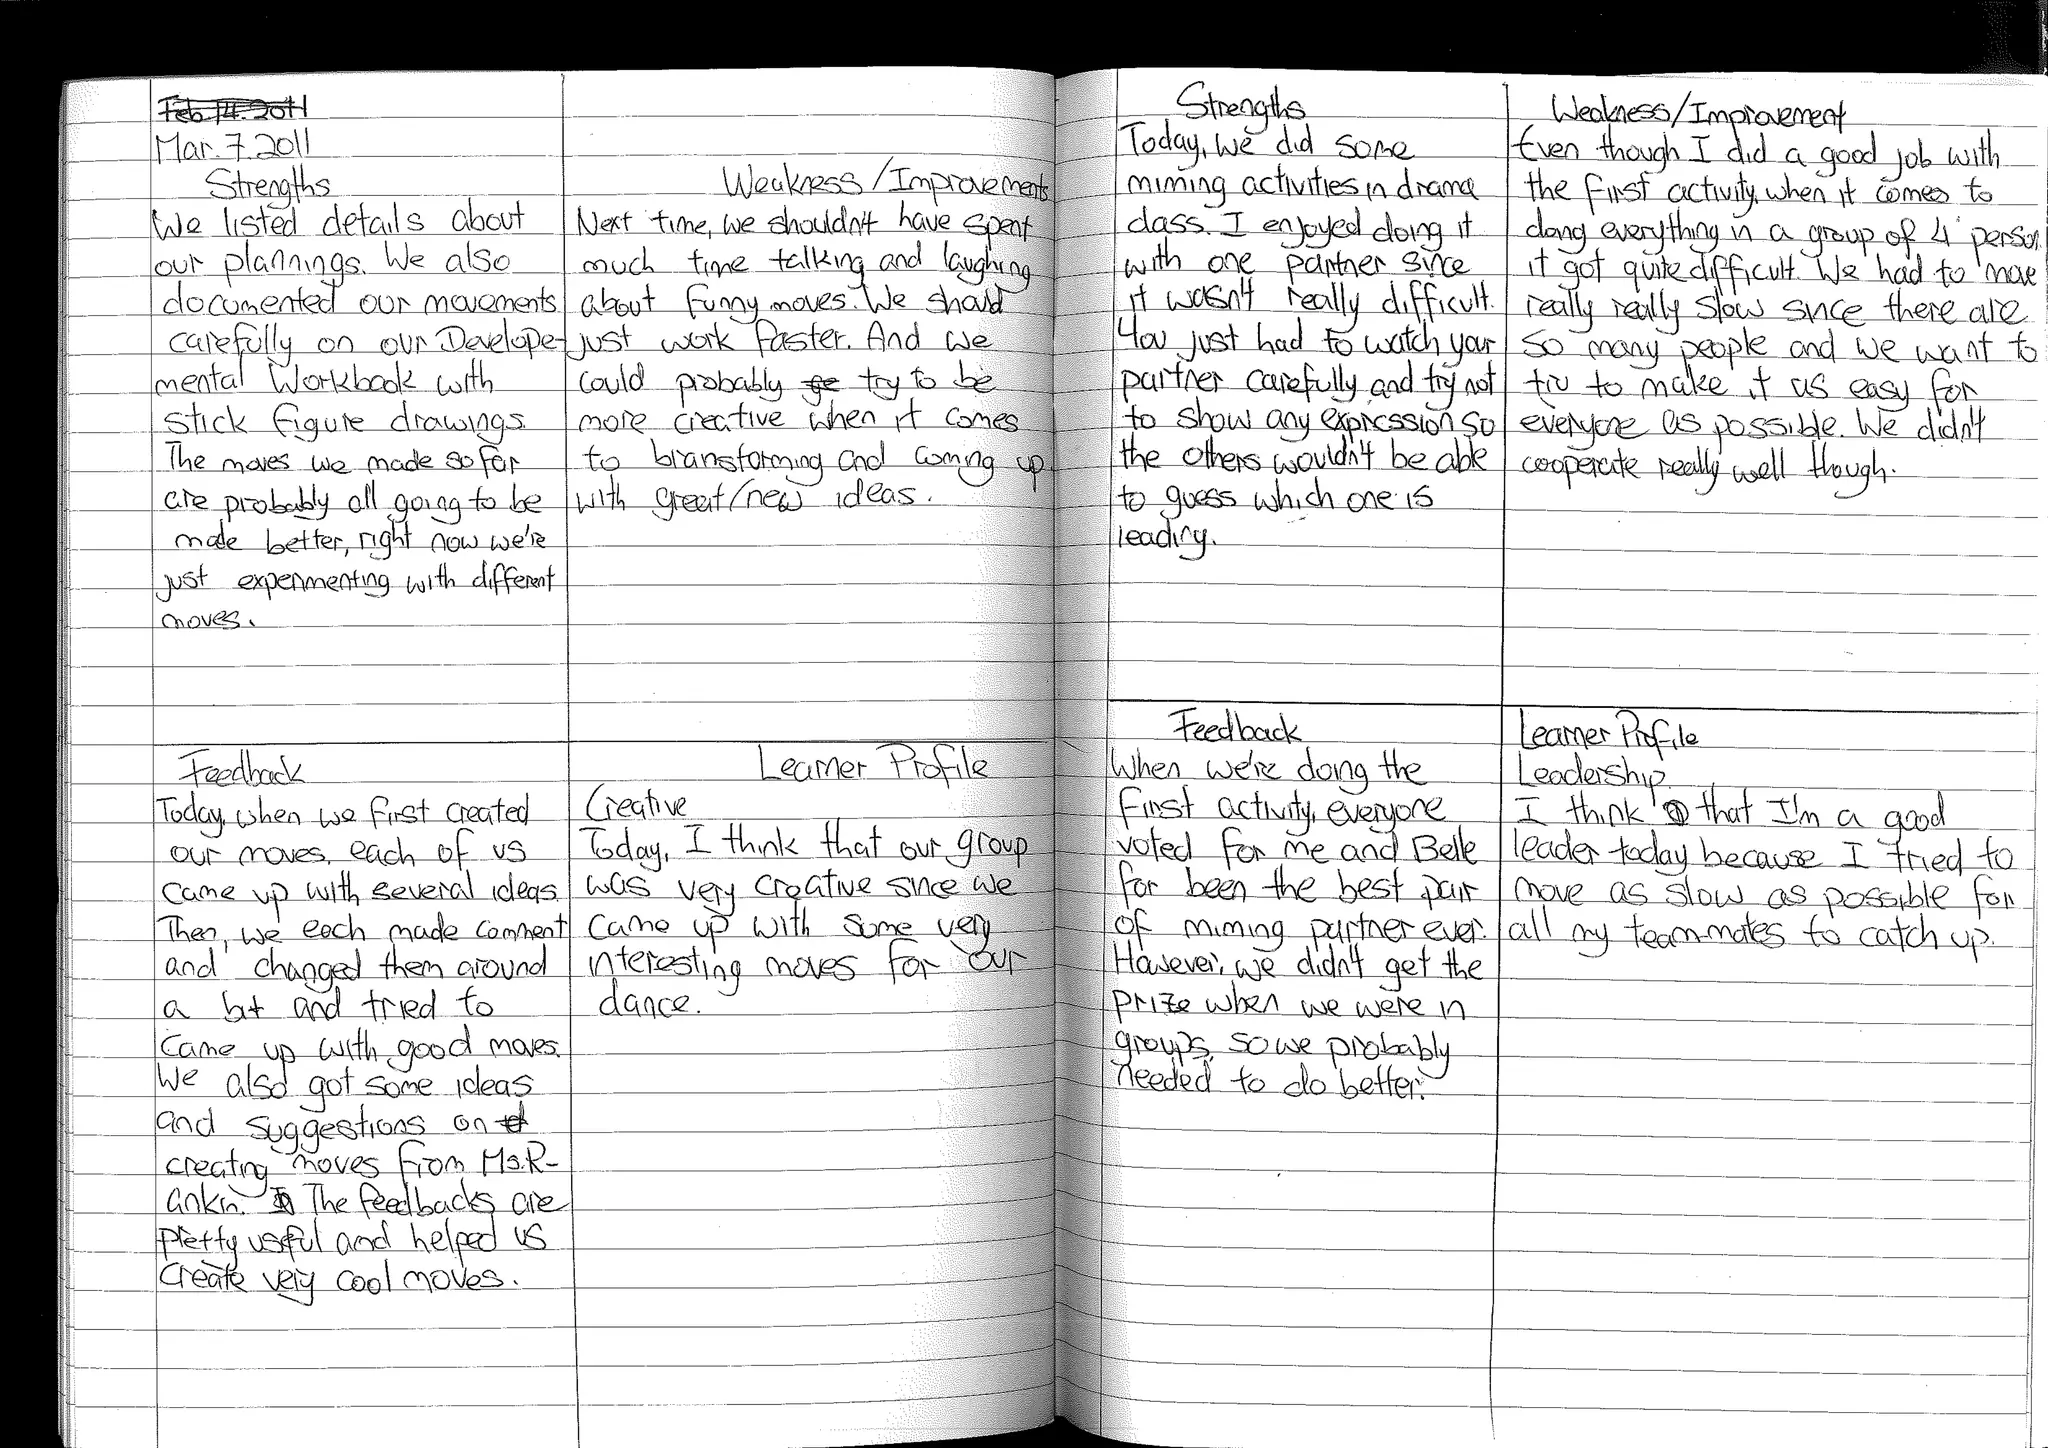 Feb 14. 2011
Mar. 7. 2011
Strengths
We listed details about
our plannings. We also
documented our movements
carefully on our Develope-
mental Workbook with
stick figure drawings.
The moves we made so far
are probably all going to be
made better, right now we're
just experimenting with different
moves.
Weakness/Improvements
Next time, we shouldn't have spent
much time talking and laughing
about funny moves. We should
just work faster. And we
could probably try to be
more creative when it comes
to brainstorming and coming up
with great/new ideas.
Feedback
Today, when we first created
our moves, each of us
came up with several ideas.
Then, we each made comment
and changed them around
a bit and tried to
came up with good moves.
We also got some ideas
and suggestions on
creating moves from Ms.R-
ankin. The feedbacks are
pretty useful and helped us
create very cool moves.
Learner Profile
Creative
Today, I think that our group
was very creative since we
came up with some very
interesting moves for our
dance.
Strengths
Today, we did some
miming activities in drama
class. I enjoyed doing it
with one partner since
it wasn't really difficult.
You just had to watch your
partner carefully and try not
to show any expression so
the others wouldn't be able
to guess which one is
leading.
Weakness/Improvement
Even though I did a good job with
the first activity, when it comes to
doing everything in a group of 4 person,
it got quite difficult. We had to move
really really slow since there are
so many people and we want to
try to make it as easy for
everyone as possible. We didn't
cooperate really well though.
Feedback
When we're doing the
first activity, everyone
voted for me and Belle
for been the best pair
of miming partner ever.
However, we didn't get the
prize when we were in
groups, so we probably
needed to do better.
Learner Profile
Leadership
I think that I'm a good
leader today because I tried to
move as slow as possible for
all my team-mates to catch up.